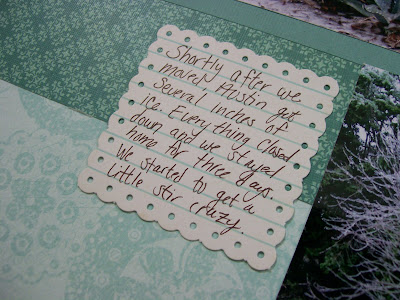 Shortly after we
moved Austin got
several inches of
ice. Everything closed
down and we stayed
home for three days.
We started to get a
little stir crazy.